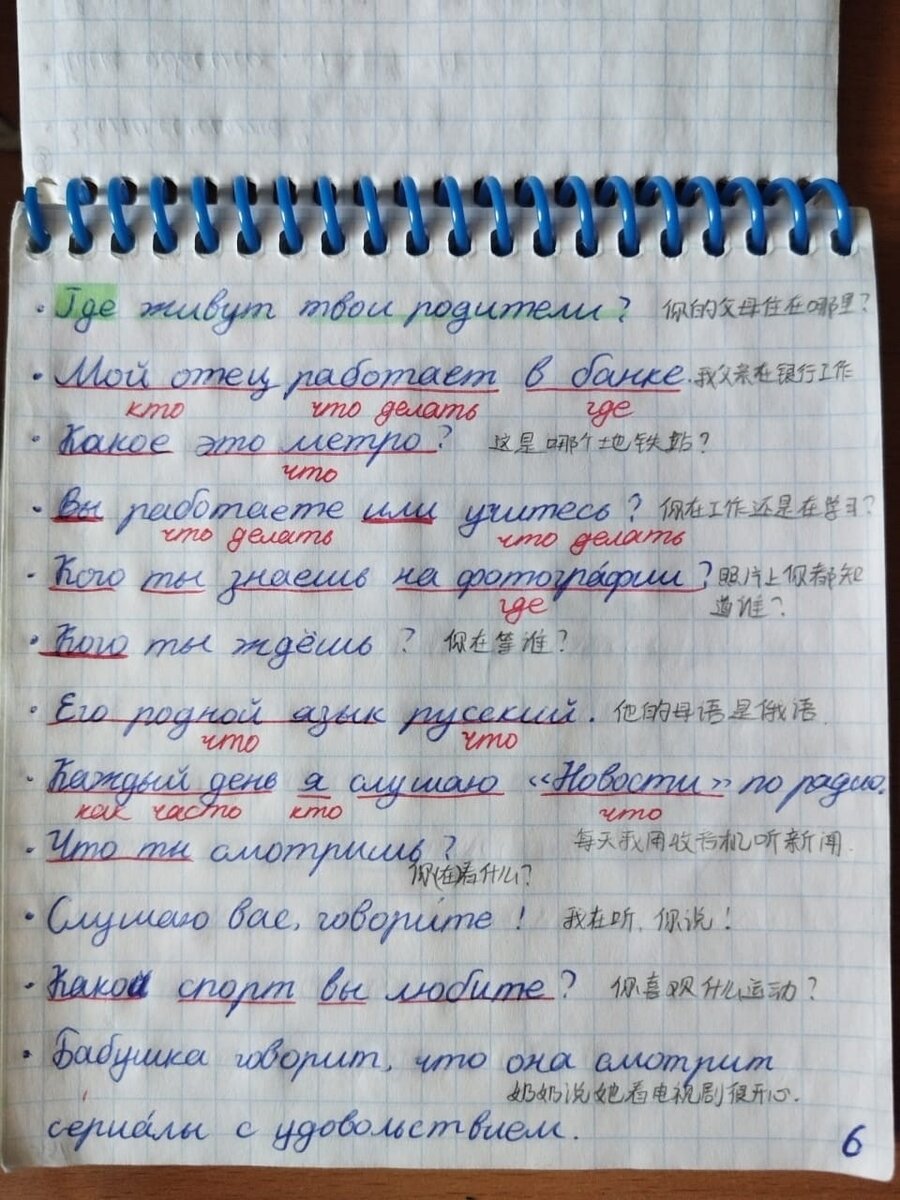 · Где живут твои родители? 你的父母住在哪里?
· Мой отец работает в банке. 我父亲在银行工作
кто что делать где
· Какое это метро? 这是哪个地铁站?
что
· Вы работаете или учитесь? 你在工作还是在学习?
что делать что делать
· Кого ты знаешь на фотогра́фии? 照片上你都知
где 道谁?
· Кого ты ждёшь? 你在等谁?
· Его родной язык русский. 他的母语是俄语.
что что
· Каждый день я слушаю «Новости» по радио.
как часто кто что
· Что ты смотришь? 每天我用收音机听新闻.
你(在)看什么?
· Слушаю вас, говори́те! 我在听, 你说!
· Какой спорт вы любите? 你喜欢什么运动?
· Бабушка говорит, что она смотрит
奶奶说她看电视剧很开心.
сериа́лы с удовольствием.
6